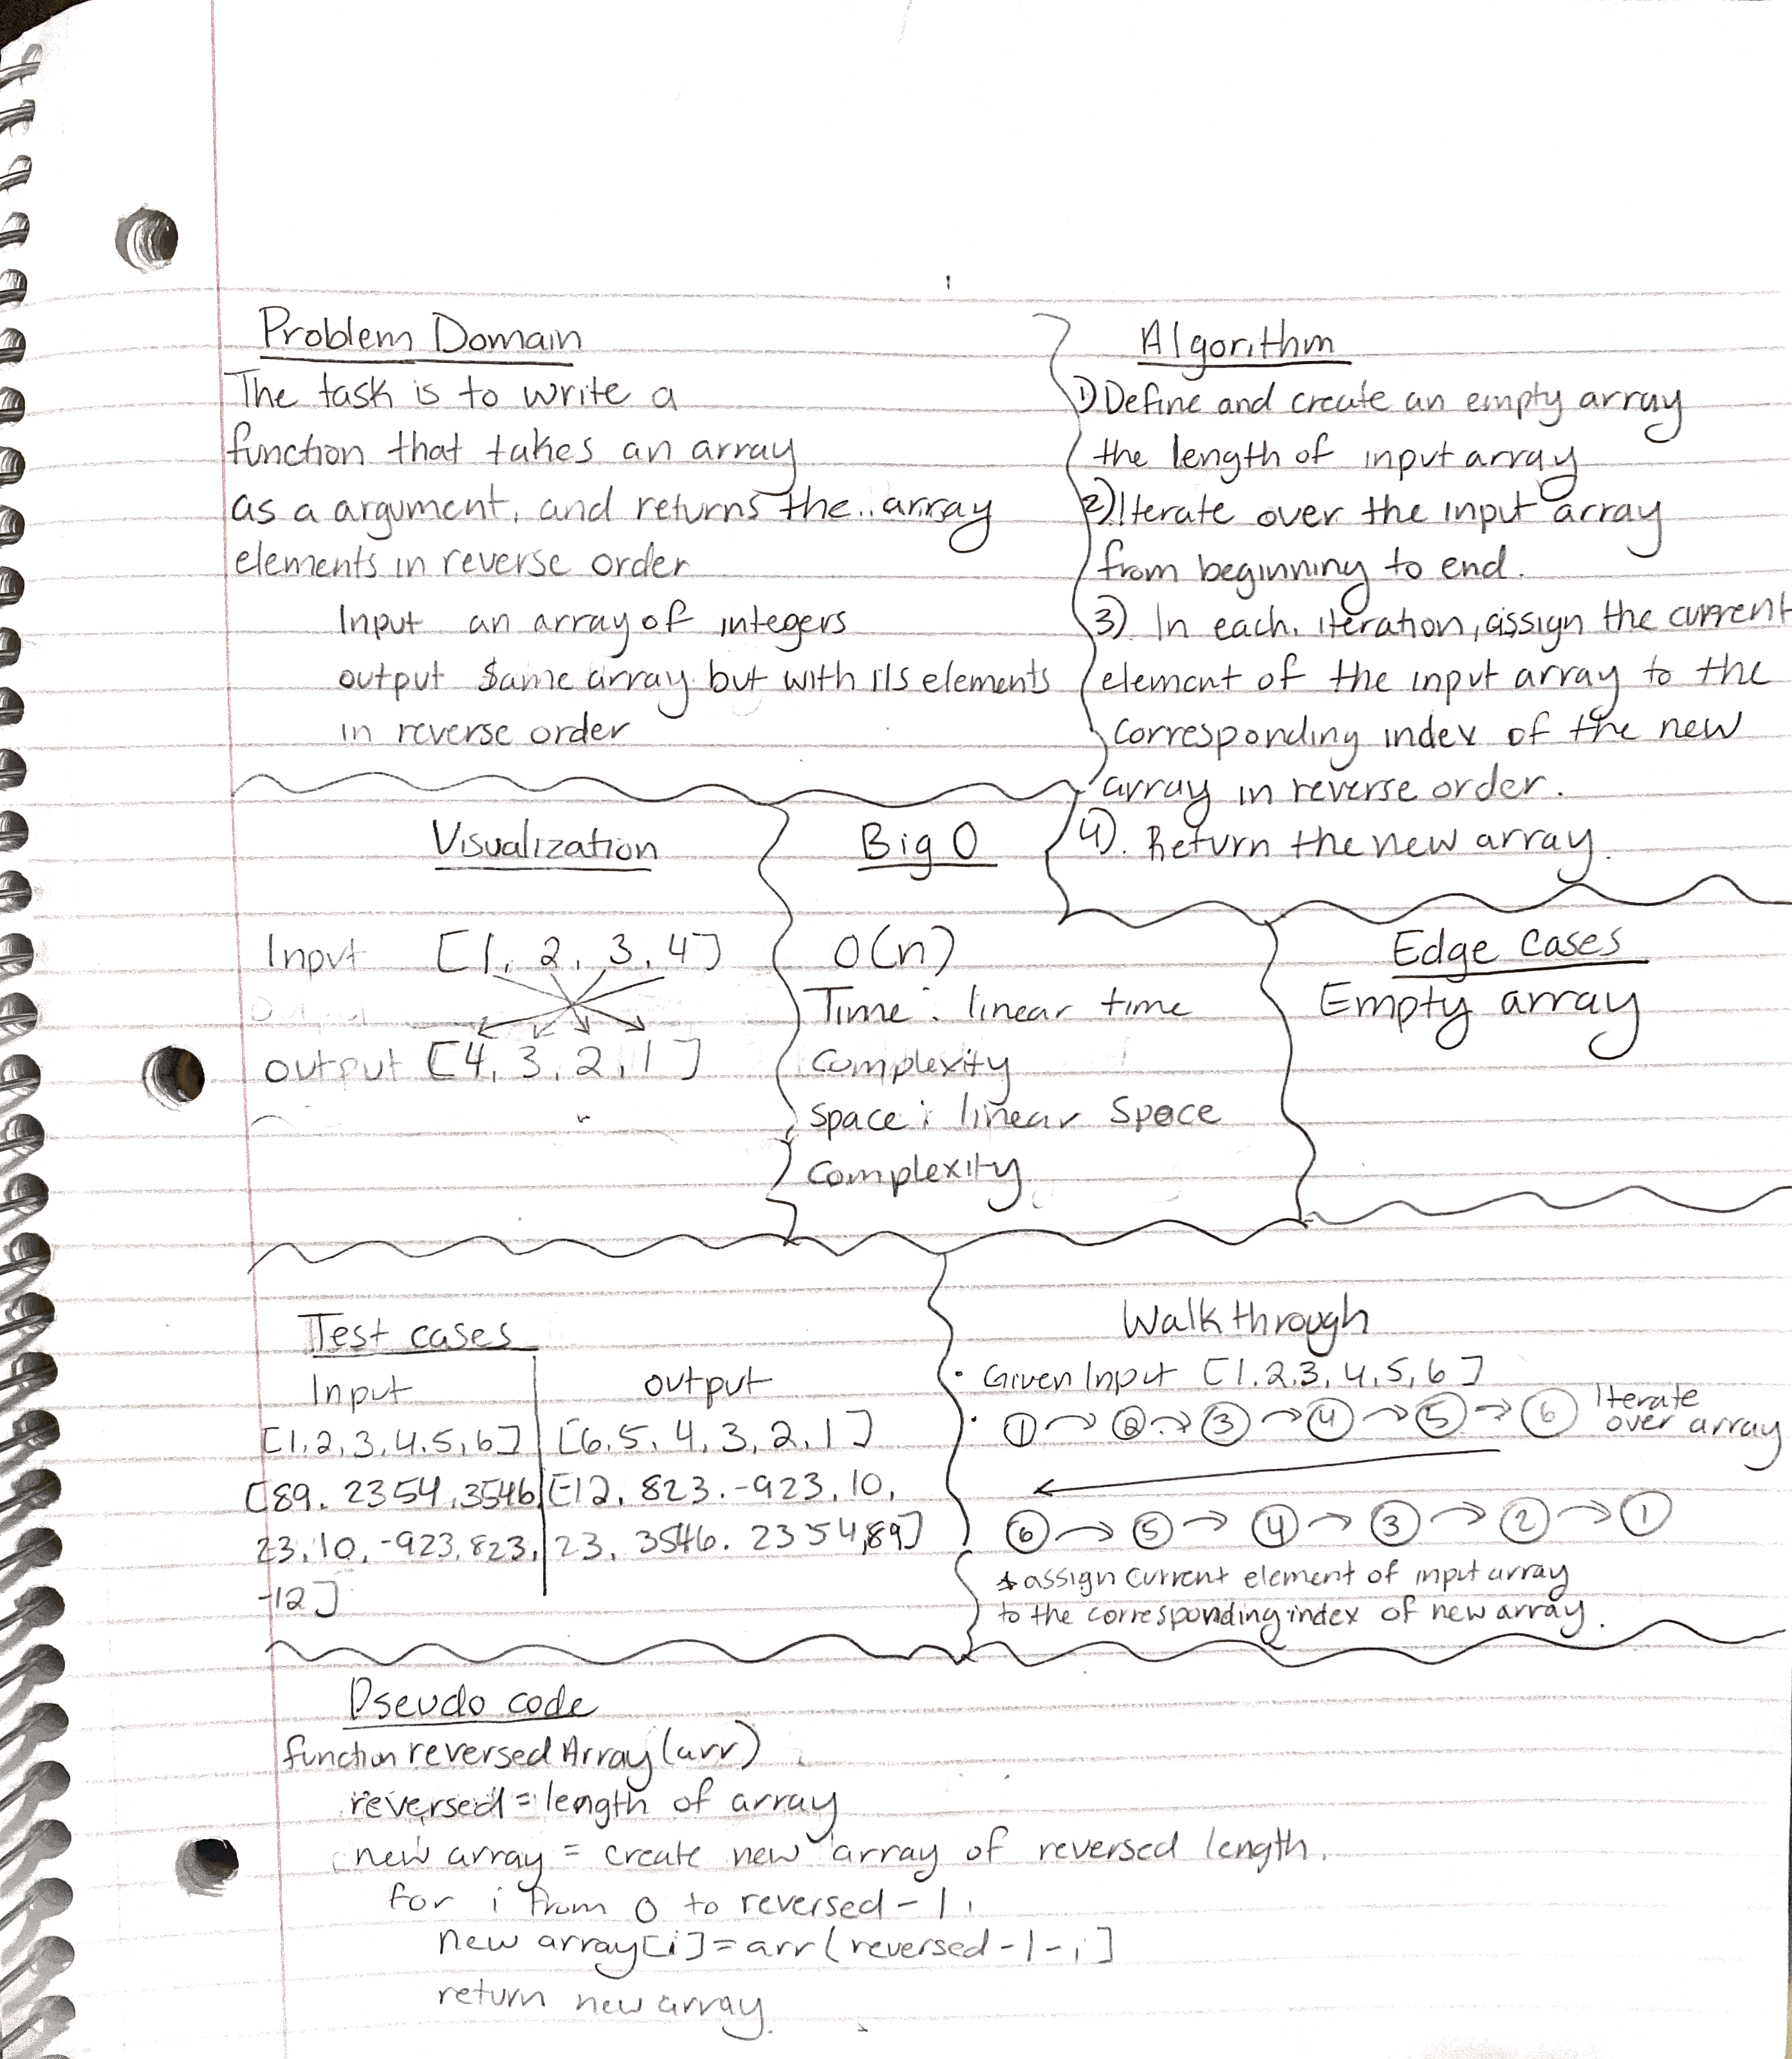 Problem Domain
The task is to write a
function that takes an array
as a argument, and returns the.. array
elements in reverse order
Input an array of integers
output Same array but with its elements
in reverse order
Algorithm
1) Define and create an empty array
the length of input array
2) Iterate over the input array
from beginning to end.
3). In each. iteration, assign the current
element of the input array to the
corresponding index of the new
array in reverse order.
4). Return the new array.
Visualization
Input [1, 2, 3, 4]
output [4, 3, 2, 1]
Big O
O(n)
Time: linear time
complexity
space: linear space
complexity
Edge Cases
Empty array
Test cases
Input output
[1,2,3,4,5,6] [6,5,4,3,2,1]
[89, 2354, 3546 [-12, 823, -923, 10,
23, 10, -923, 823, 23, 3546, 2354, 89]
-12]
Walk through
· Given Input [1,2,3,4,5,6]
· 1 2 3 4 5 6 Iterate
over array
6 5 4 3 2 1
* assign current element of input array
to the corresponding index of new array.
Pseudo code
function reversedArray(arr)
reversed = length of array
new array = create new array of reversed length.
for i from 0 to reversed-1,
new array[i] = arr(reversed-1-i]
return new array.